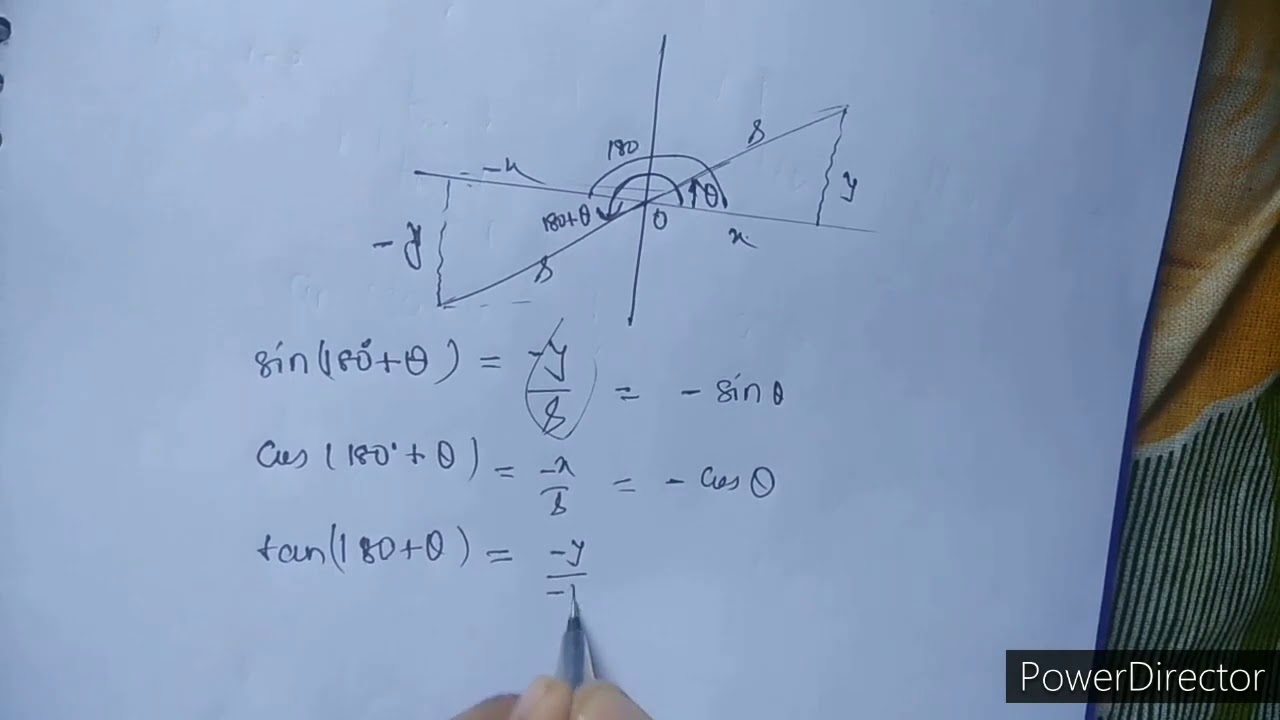 180
8
-x
θ
y
180+θ
0
x
-y
8
sin(180°+θ) = -y/8 = - sin θ
cos(180°+θ) = -x/8 = - cos θ
tan(180+θ) = -y/-
PowerDirector